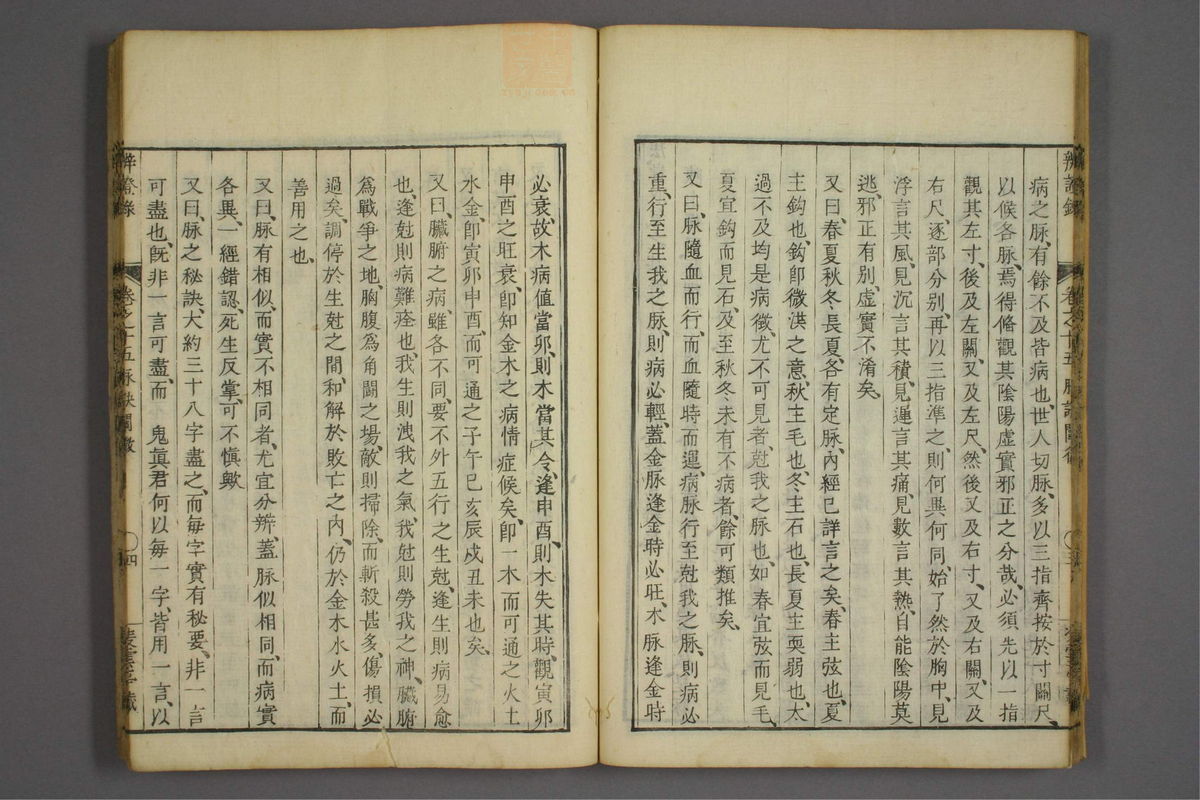 辨證錄
病之脉、有餘不及皆病也、世人切脉、多以三指齊按於寸關尺、
以候各脉、焉得脩觀其陰陽虛實邪正之分哉、必須先以一指
觀其左寸、後及左關、又及左尺、然後又及右寸、又及右關、又及
右尺、逐部分別、再以三指準之、則何異何同、始了然於胸中、見
浮言其風、見沉言其積、見遲言其痛、見數言其熱、自能陰陽莫
逃、邪正有別、虛實不淆矣、
又曰、春夏秋冬、長夏、各有定脉、內經已詳言之矣、春主弦也、夏
主鈎也、鈎卽微洪之意、秋主毛也、冬主石也、長夏主耎弱也、太
過不及、均是病徵、尤不可見者、尅我之脉也、如春宜弦而見毛、
夏宜鈎而見石、及至秋冬、未有不病者、餘可類推矣、
又曰、脉隨血而行、而血隨時而運、病脉行至尅我之脉、則病必
重、行至生我之脉、則病必輕、蓋金脉逢金時必旺、木脉逢金時
必衰、故木病值當卯、則木當其令、逢申酉、則木失其時、觀寅卯
申酉之旺衰、卽知金木之病情症候矣、卽一木而可通之火土
水金、卽寅卯申酉、而可通之子午巳亥辰戌丑未也矣、
又曰、臟腑之病、雖各不同、要不外五行之生尅、逢生則病易愈
也、逢尅則病難痊也、我生則洩我之氣、我尅則勞我之神、臟腑
爲戰爭之地、胸腹爲角鬪之場、敵則掃除、而斬殺甚多、傷損必
過矣、調停於生尅之間、和解於敗亡之內、仍於金木水火土、而
善用之也、
又曰、脉有相似、而實不相同者、尤宜分辨、蓋脉似相同、而病實
各異、一經錯認、死生反掌、可不愼歟
又曰、脉之秘訣、大約三十八字盡之、而每字實有秘要、非一言
可盡也、旣非一言可盡、而 鬼眞君何以每一字、皆用一言、以
辨證錄
卷之十五
四